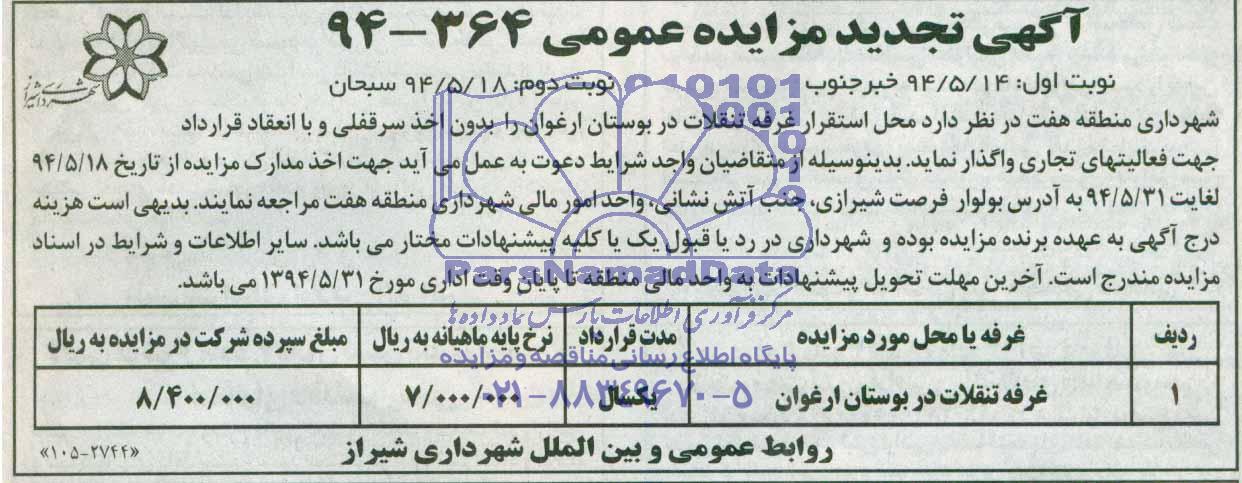 آگهی تجدید مزایده عمومی ۳۶۴-۹۴
شهرداری شیراز
نوبت اول: ۹۴/۵/۱۴ خبرجنوب نوبت دوم: ۹۴/۵/۱۸ سبحان
شهرداری منطقه هفت در نظر دارد محل استقرار غرفه تنقلات در بوستان ارغوان را بدون اخذ سرقفلی و با انعقاد قرارداد
جهت فعالیتهای تجاری واگذار نماید. بدینوسیله از متقاضیان واجد شرایط دعوت به عمل می آید جهت اخذ مدارک مزایده از تاریخ ۹۴/۵/۱۸
لغایت ۹۴/۵/۳۱ به آدرس بولوار فرصت شیرازی، جنب آتش نشانی، واحد امور مالی شهرداری منطقه هفت مراجعه نمایند. بدیهی است هزینه
درج آگهی به عهده برنده مزایده بوده و شهرداری در رد یا قبول یک یا کلیه پیشنهادات مختار می باشد. سایر اطلاعات و شرایط در اسناد
مزایده مندرج است. آخرین مهلت تحویل پیشنهادات به واحد مالی منطقه تا پایان وقت اداری مورخ ۱۳۹۴/۵/۳۱ می باشد.
ParsNamadData
مرکز فرآوری اطلاعات پارس نماد داده ها
پایگاه اطلاع رسانی مناقصه و مزایده
۰۲۱-۸۸۳۴۹۶۷۰-۵
ردیف غرفه یا محل مورد مزایده مدت قرارداد نرخ پایه ماهیانه به ریال مبلغ سپرده شرکت در مزایده به ریال
۱ غرفه تنقلات در بوستان ارغوان یکسال ۷/۰۰۰/۰۰۰ ۸/۴۰۰/۰۰۰
روابط عمومی و بین الملل شهرداری شیراز
«۱۰۵-۲۷۴۴»